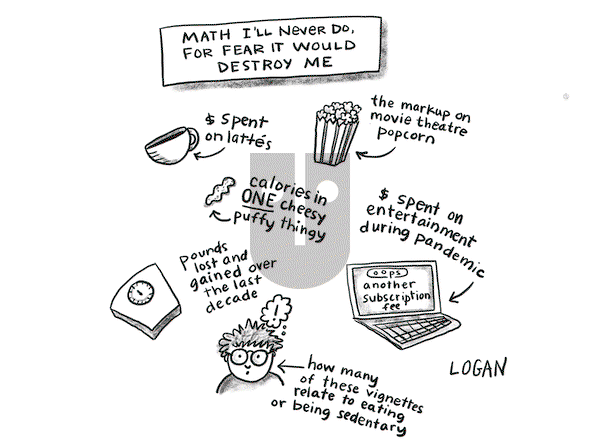 MATH I'LL NEVER DO,
FOR FEAR IT WOULD
DESTROY ME
$ spent
on lattés
the markup on
movie theatre
popcorn
calories in
ONE cheesy
puffy thingy
$ spent on
entertainment
during pandemic
pounds
lost and
gained over
the last
decade
oops
another
subscription
fee
!
how many
of these vignettes
relate to eating
or being sedentary
LOGAN